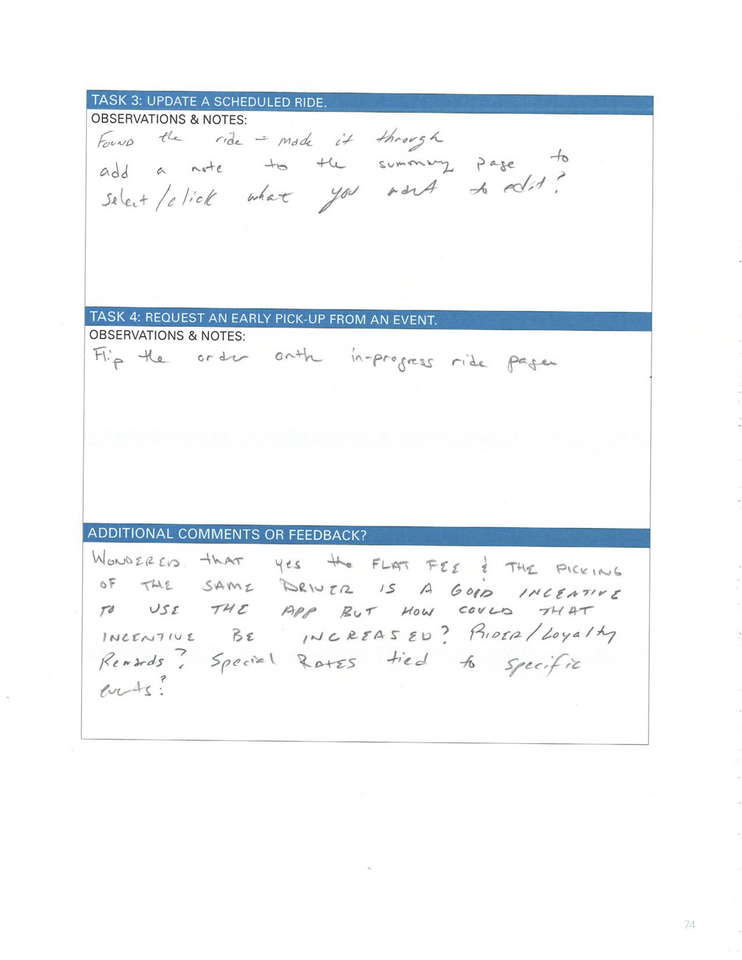 TASK 3: UPDATE A SCHEDULED RIDE.
OBSERVATIONS & NOTES:
Found the ride - made it through
add a note to the summary page to
select/click what you want to edit?
TASK 4: REQUEST AN EARLY PICK-UP FROM AN EVENT.
OBSERVATIONS & NOTES:
Flip the order onth in-progress ride page
ADDITIONAL COMMENTS OR FEEDBACK?
WONDERED that yes the FLAT FEE & THE PICKING
OF THE SAME DRIVER IS A GOOD INCENTIVE
TO USE THE APP BUT HOW COULD THAT
INCENTIVE BE INCREASED? RIDER/Loyalty
Rewards? Special RATES tied to specific
events?
74